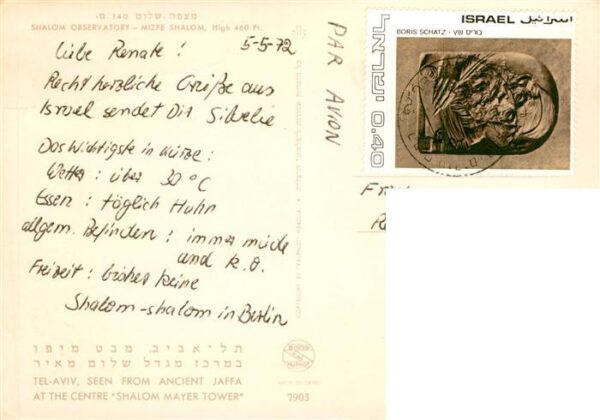 מצפה שלום 140 מ.
SHALOM OBSERVATORY – MIZPE SHALOM, High 460 Ft.
5-5-72
Liebe Renate!
Recht herzliche Grüße aus
Israel sendet Dir
Das Wichtigste in Kürze:
Wetter: über 30°C
Essen: täglich Huhn
allgem. Befinden: immer müde
und k.o.
Freizeit: bisher keine
Shalom-shalom in Berlin
תל-אביב, מבט מיפו
במרכז מגדל שלום מאיר
TEL-AVIV, SEEN FROM ANCIENT JAFFA
AT THE CENTRE "SHALOM MAYER TOWER"
7903
PAR AVION
ISRAEL اسرائيل
BORIS SCHATZ • בוריס שץ
ישראל 0.40